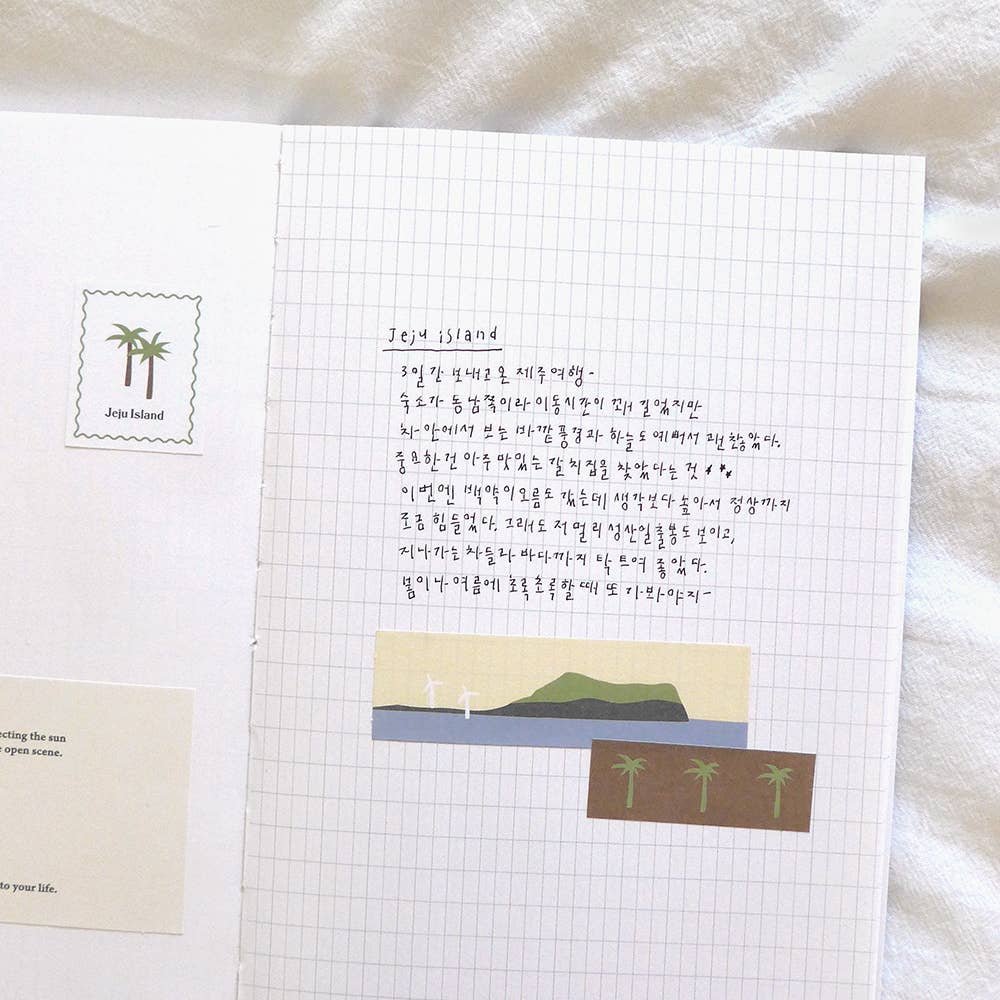 Jeju Island
ecting the sun
e open scene.
to your life.
Jeju island
3일간 보내고 온 제주여행-
숙소가 동남쪽이라 이동시간이 꽤 길었지만
차 안에서 보는 바깥풍경과 하늘도 예뻐서 괜찮았다.
중요한건 아주 맛있는 갈치집을 찾았다는 것 ***
이번엔 백약이오름도 갔는데 생각보다 높아서 정상까지
조금 힘들었다. 그래도 저 멀리 성산일출봉도 보이고,
지나가는 차들라 바다까지 탁 트여 좋았다.
봄이나 여름에 초록초록할 때 또 가봐야지-